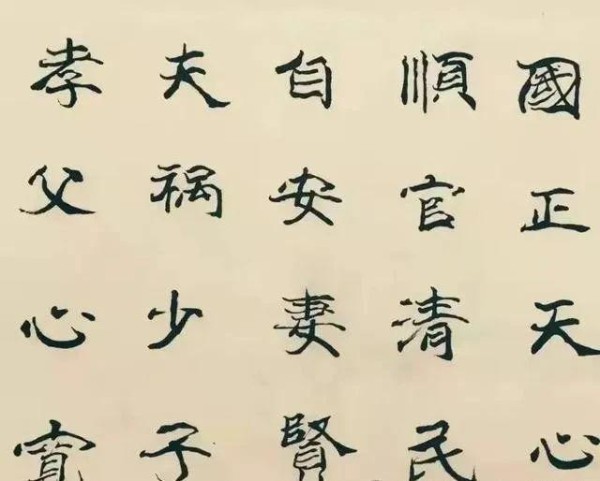 國正天心
順官清民
自安妻賢
夫祸少子
孝父心寬